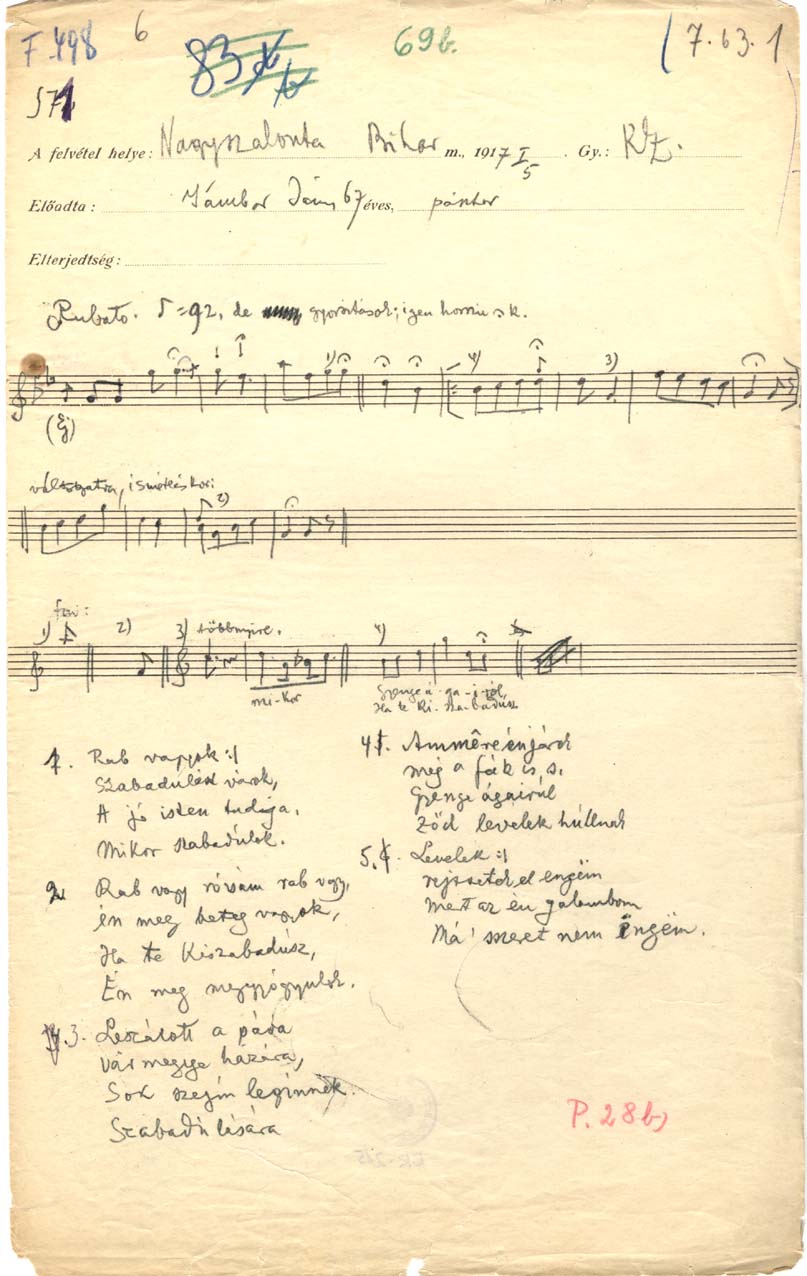 F. 498 6 83 69b. 7.63.1
571
A felvétel helye: Nagyszalonta Bihar m., 1917 I/5 . Gy.: KZ.
Előadta: Jámbor János 67 éves, pásztor
Elterjedtség:
Rubato. =92, de gyorsítások; igen hosszú k.
1) 4) 3)
(Ej)
változatra, ismétléskor:
2)
fent:
1) 2) 3) többnyire. 4)
mi-kor
Gyenge á-ga-i-ról,
Ha te ki-sza-badúsz
1. Rab vagyok :/
Szabadúlást várok,
A jó isten tudja,
Mikor szabadúlok.
2. Rab vagy rózsám rab vagy,
én meg beteg vagyok,
Ha te kiszabadúsz,
Én meg meggyógyulok.
3. Leszállott a páva
vármegye házára,
Sok szegín legínnek
Szabadúlására
4. Ammêre én járok
még a fák is, s.
Gyenge ágairúl
Ződ levelek húllnak
5. Levelek :/
rejtsetek el engëm
mert az én galambom
Má' szeret nem ëngëm.
P. 28b)